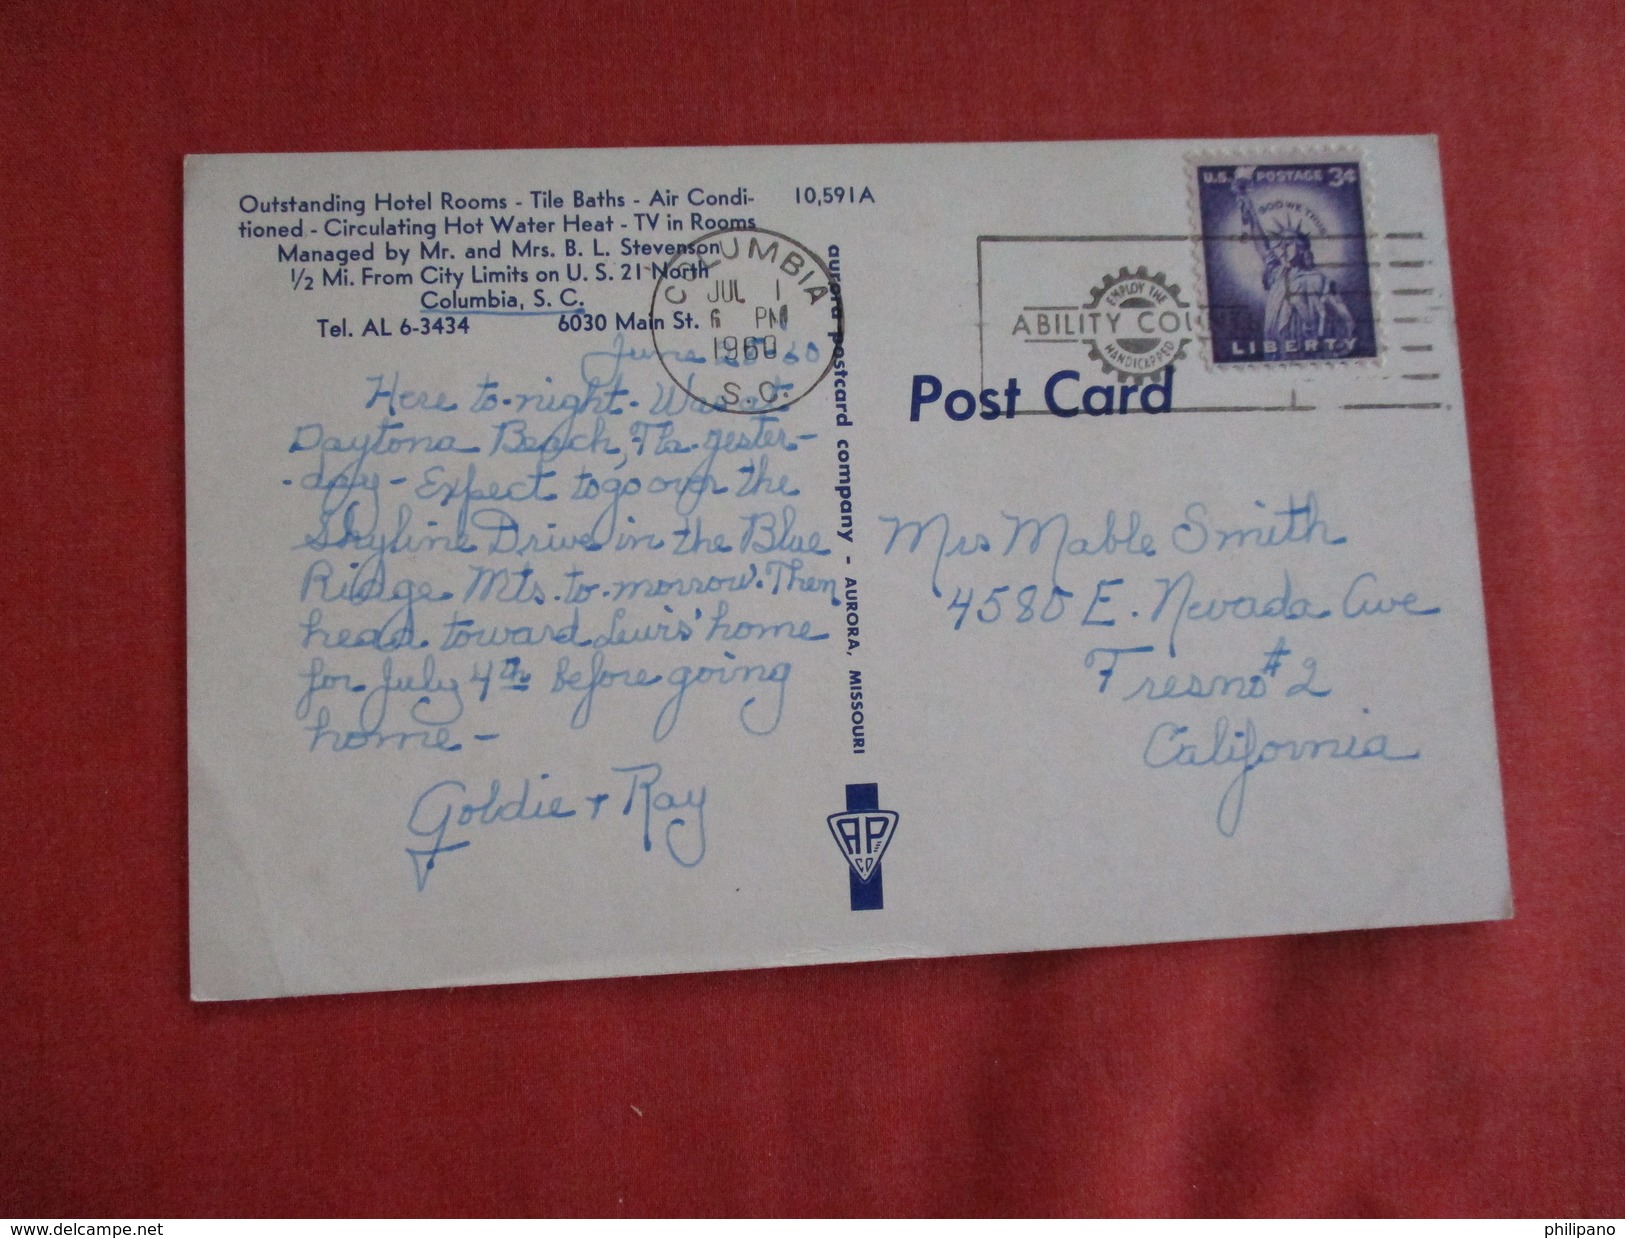 Outstanding Hotel Rooms - Tile Baths - Air Condi-
tioned - Circulating Hot Water Heat - TV in Rooms
Managed by Mr. and Mrs. B. L. Stevenson
1/2 Mi. From City Limits on U. S. 21 North
Columbia, S. C.
Tel. AL 6-3434 6030 Main St.
10,591A
COLUMBIA
JUL 1
6 PM
1960
S.C.
June 60
Here to-night. Was at
Daytona Beach, Fla. yester-
-day - Expect to go over the
Skyline Drive in the Blue
Ridge Mts. to-morrow. Then
head toward Lewis' home
for July 4th before going
home -
Goldie + Ray
aurora postcard company - AURORA, MISSOURI
AP
CO
ABILITY
EMPLOY THE
HANDICAPPED
U.S. POSTAGE 3¢
IN GOD WE TRUST
LIBERTY
Post Card
Mrs Mable Smith
4580 E. Nevada Ave
Fresno #2
California
www.delcampe.net
philipano